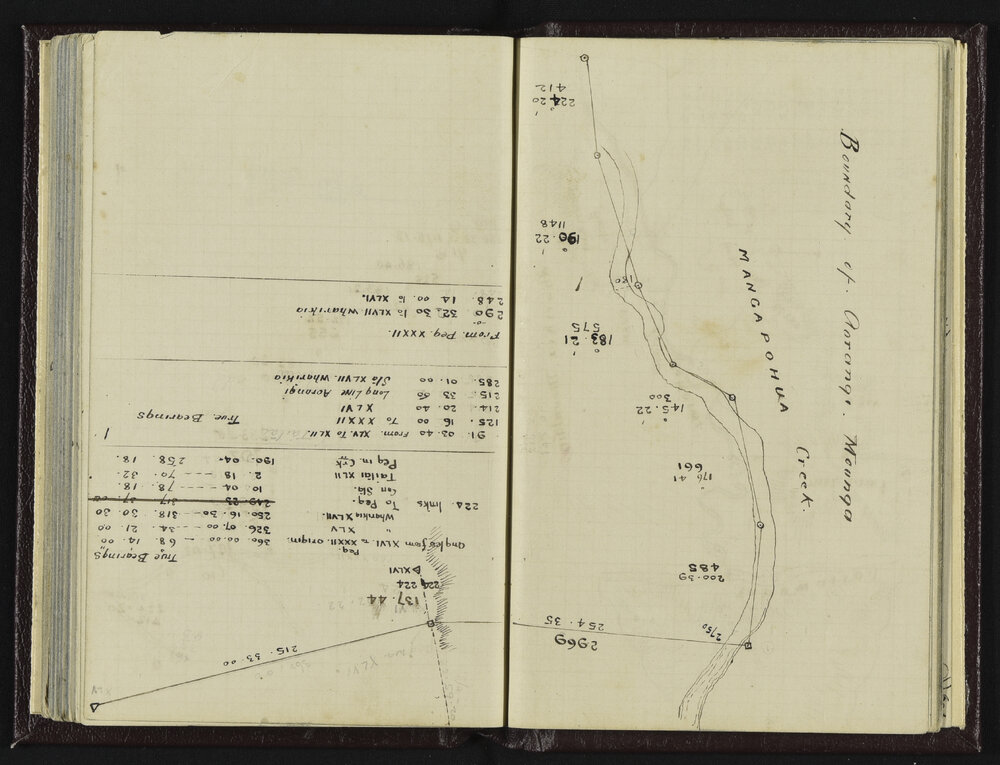 True Bearings
Peg
angles from XLVI. to XXXII. origin. 360. 00. 00 — 68. 14. 00
" XLV 326. 07. 00 — 34. 21. 00
Wharikia XLVII. 250. 16. 30 — 318. 30. 30
224 links To Peg.
Can Stã. 10. 04 — 78. 18.
Tailai XLII 2. 18 — 70. 32.
Peg in Crk 190. 04. 258. 18.
91. 03. 40 From XLV. To XLII.
125. 16 00 To XXXII
True Bearings
214. 20. 40 XLVI
215. 33. 00 Long Line Aorangi
285. 01. 00 Stã XLVII. Wharikia
From Peg XXXII.
290. 32. 30 to XLVII. Wharikia
248. 14. 00. to XLVI.
XLVI
224 224
137.44
215. 33. 00
XLV
Boundary of Aorangi Mounga
MANGAPOHUA
Creek.
224 20
412
190. 22
1148
180
183. 21
575
145. 22
300
176 41
661
200. 39
485
2750
254. 35
2969